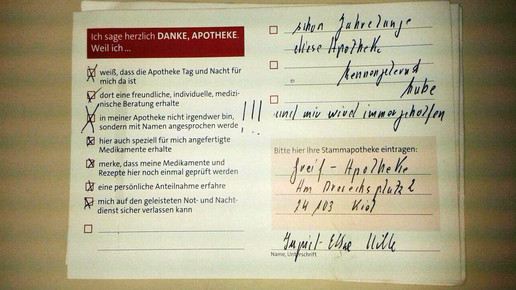 Ich sage herzlich DANKE, APOTHEKE.
Weil ich ...
weiß, dass die Apotheke Tag und Nacht für
mich da ist
dort eine freundliche, individuelle, medizi-
nische Beratung erhalte
in meiner Apotheke nicht irgendwer bin,
sondern mit Namen angesprochen werde
hier auch speziell für mich angefertigte
Medikamente erhalte
merke, dass meine Medikamente und
Rezepte hier noch einmal geprüft werden
eine persönliche Anteilnahme erfahre
mich auf den geleisteten Not- und Nacht-
dienst sicher verlassen kann
!!!
schon Jahrelang
diese Apotheke
kennengelernt
habe
und mir wird immer geholfen
Bitte hier Ihre Stammapotheke eintragen:
Greif - Apotheke
Am Dreiecksplatz 2
24103 Kiel
Name, Unterschrift